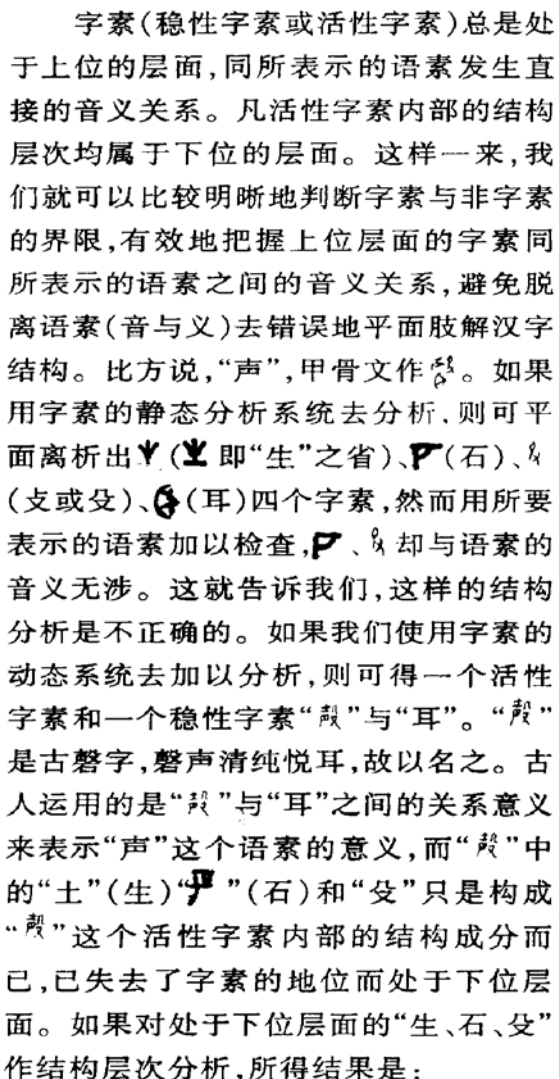 字素(稳性字素或活性字素)总是处
于上位的层面,同所表示的语素发生直
接的音义关系。凡活性字素内部的结构
层次均属于下位的层面。这样一来,我
们就可以比较明晰地判断字素与非字素
的界限,有效地把握上位层面的字素同
所表示的语素之间的音义关系,避免脱
离语素(音与义)去错误地平面肢解汉字
结构。比方说,“声”,甲骨文作。如果
用字素的静态分析系统去分析,则可平
面离析出(即“生”之省)、(石)、
(攴或殳)、(耳)四个字素,然而用所要
表示的语素加以检查,、却与语素的
音义无涉。这就告诉我们,这样的结构
分析是不正确的。如果我们使用字素的
动态系统去加以分析,则可得一个活性
字素和一个稳性字素“殸”与“耳”。“殸”
是古磬字,磬声清纯悦耳,故以名之。古
人运用的是“殸”与“耳”之间的关系意义
来表示“声”这个语素的意义,而“殸”中
的“土”(生)“”(石)和“殳”只是构成
“殸”这个活性字素内部的结构成分而
已,已失去了字素的地位而处于下位层
面。如果对处于下位层面的“生、石、殳”
作结构层次分析,所得结果是: